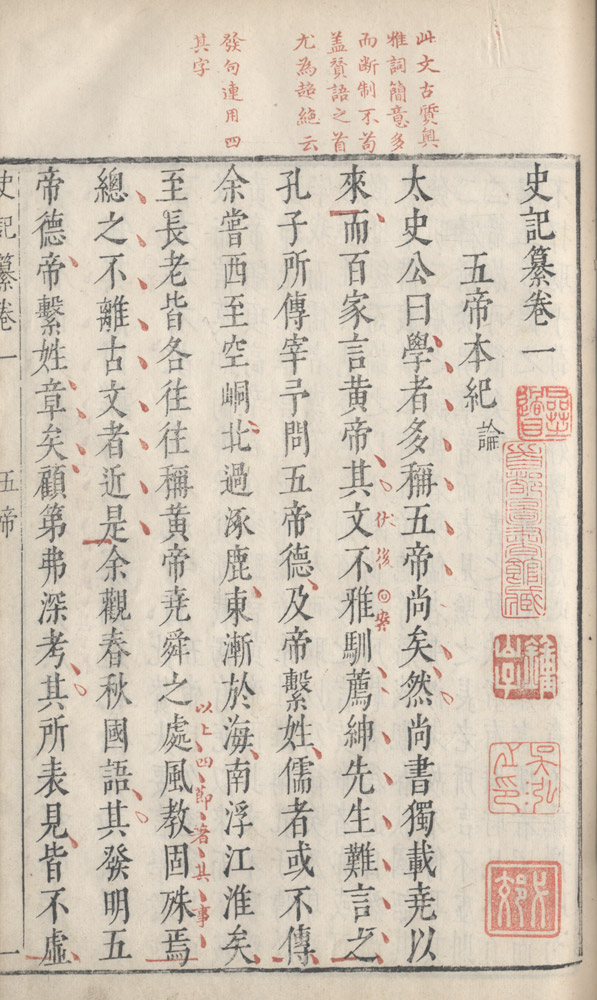 此文古質奧
雅詞簡意多
而断制不苟
盖賛語之首
尤為超絶云
發句連用四
其字
史記纂卷一
五帝本紀 論
太史公曰學者多稱五帝尚矣然尚書獨載堯以
來而百家言黃帝其文不雅馴薦紳先生難言之
伏後回案
孔子所傳宰予問五帝德及帝繫姓儒者或不傳
余嘗西至空峒北過涿鹿東漸於海南浮江淮矣
以上四節著其事
至長老皆各往往稱黃帝堯舜之處風教固殊焉
總之不離古文者近是余觀春秋國語其發明五
帝德帝繫姓章矣顧第弗深考其所表見皆不虛
史記纂卷一
五帝
一
首都圖書館藏
吳弘